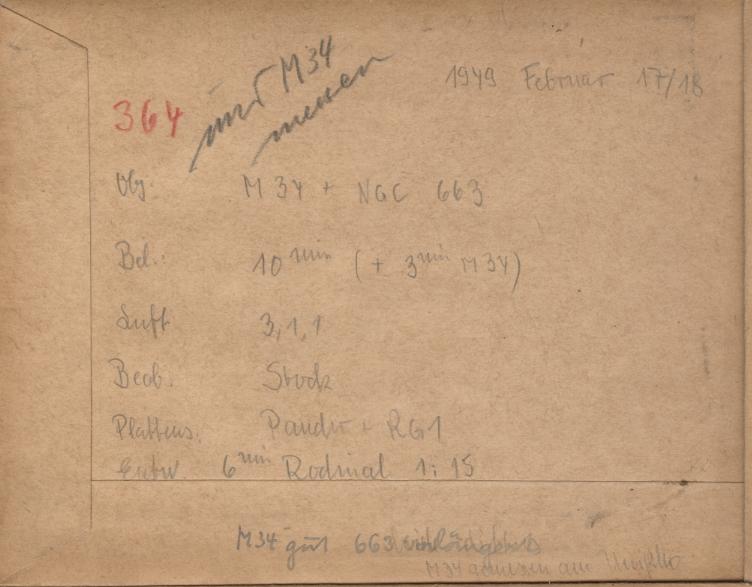 1949 Februar 17/18
364
nur M34
messen
Obj. M 34 + NGC 663
Bel.: 10 min (+ 3 min M 34)
Luft 3,1,1
Beob. Stock
Plattens. Panchr + RG1
Entw. 6 min Rodinal 1:15
M34 gut 663
M34 am